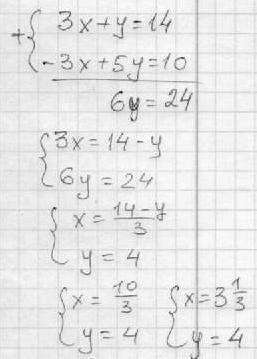 + { 3x+y=14
{ -3x+5y=10
6y=24
{ 3x=14-y
{ 6y=24
{ x=\frac{14-y}{3}
{ y=4
{ x=\frac{10}{3} { x=3\frac{1}{3}
{ y=4 { y=4